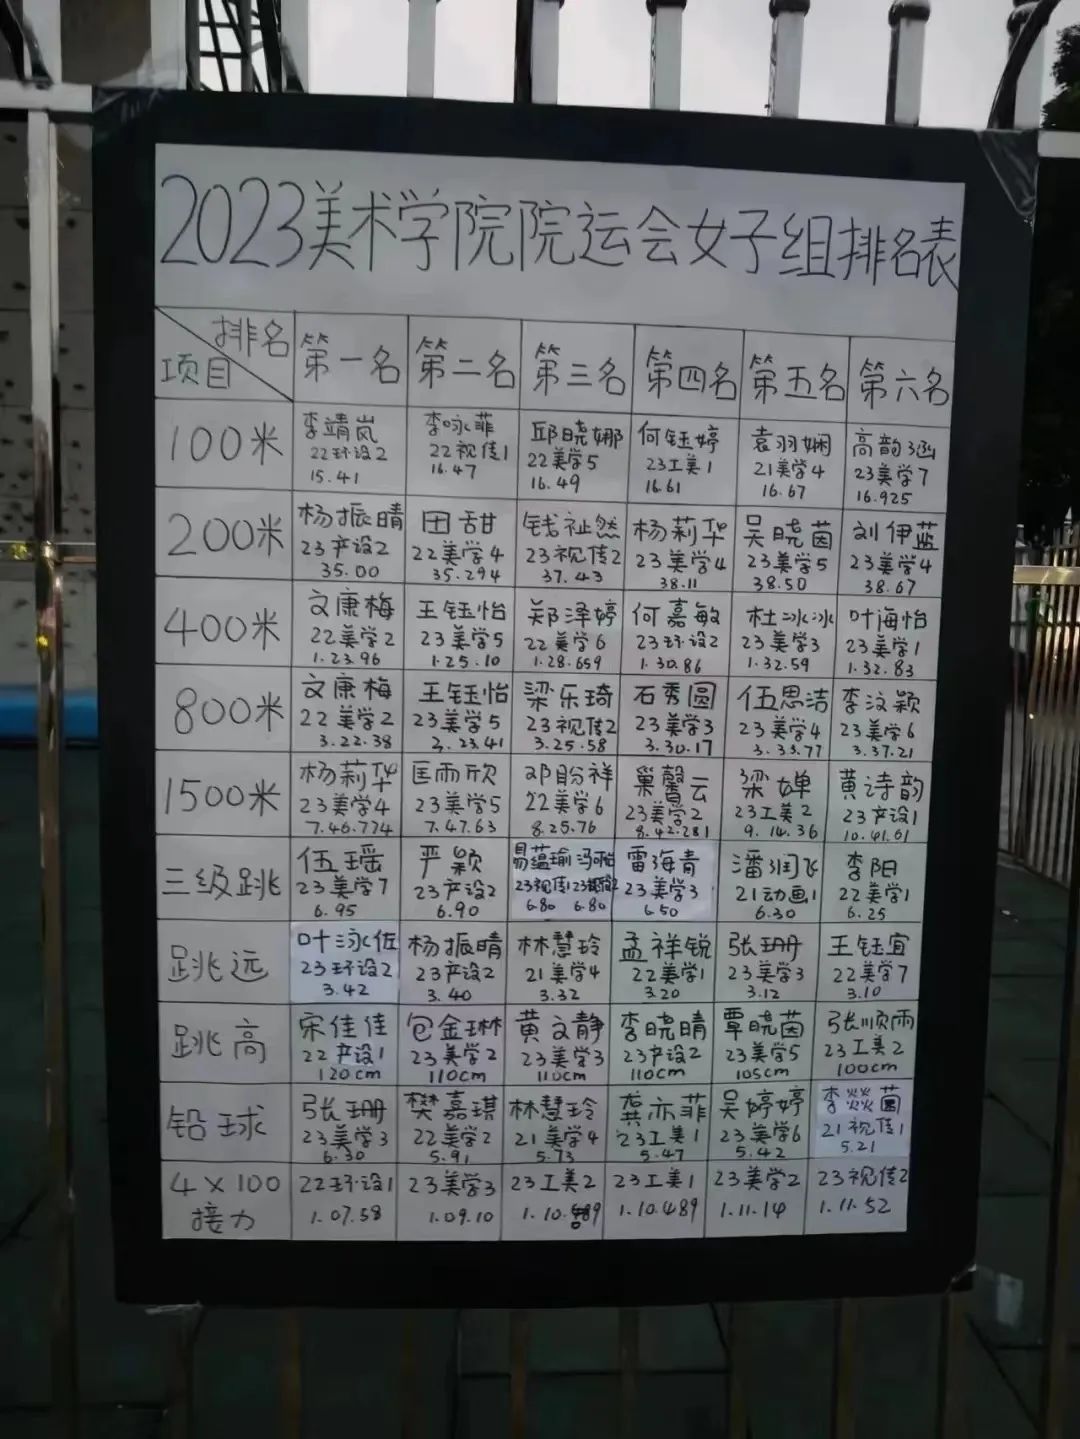 2023美术学院院运会女子组排名表
排名
项目
第一名 第二名 第三名 第四名 第五名 第六名
100米
李靖岚 李咏菲 邱晓娜 何钰婷 袁羽娴 高韵涵
22环设2 22视传1 22美学5 23工美1 21美学4 23美学7
15.41 16.47 16.49 16.61 16.67 16.925
200米
杨振晴 田甜 钱祉然 杨莉华 吴晓茵 刘伊蓝
23产设2 22美学4 23视传2 23美学4 23美学5 23美学4
35.00 35.294 37.43 38.11 38.50 38.67
400米
文康梅 王钰怡 郑泽婷 何嘉敏 杜冰冰 叶海怡
22美学2 23美学5 22美学6 23环设2 23美学3 23美学1
1.23.96 1.25.10 1.28.659 1.30.86 1.32.59 1.32.83
800米
文康梅 王钰怡 梁乐琦 石秀圆 伍思洁 李汶颖
22美学2 23美学5 23视传2 23美学3 23美学4 23美学6
3.22.38 3.23.41 3.25.58 3.30.17 3.33.77 3.37.21
1500米
杨莉华 匡雨欣 邓盼祥 巢馨云 梁婵 黄诗韵
23美学4 23美学5 22美学6 23美学2 23工美2 23产设1
7.46.774 7.47.63 8.25.76 8.42.281 9.14.36 10.41.61
三级跳
伍瑶 严颖 易蕴瑜 雷海青 潘润飞 李阳
23美学7 23产设2 23视传1 23美学3 21动画1 22美学1
6.95 6.90 6.80 6.80 6.50 6.30 6.25
跳远
叶泳伍 杨振晴 林慧玲 孟祥锐 张珊 王钰宜
23环设2 23产设2 21美学4 22美学1 23美学3 22美学7
3.42 3.40 3.32 3.20 3.12 3.10
跳高
宋佳佳 包金琳 黄文静 李晓晴 覃晓茵 张顺雨
22产设1 23美学2 23美学3 23产设2 23美学5 23工美2
120cm 110cm 110cm 110cm 105cm 100cm
铅球
张珊 樊嘉琪 林慧玲 龚亦菲 吴婷婷 李燚茵
23美学3 22美学2 21美学4 23工美1 23美学6 21视传1
6.30 5.91 5.73 5.47 5.42 5.21
4×100 22环设1 23美学3 23工美2 23工美1 23美学2 23视传2
接力 1.07.58 1.09.10 1.10.489 1.11.14 1.11.52